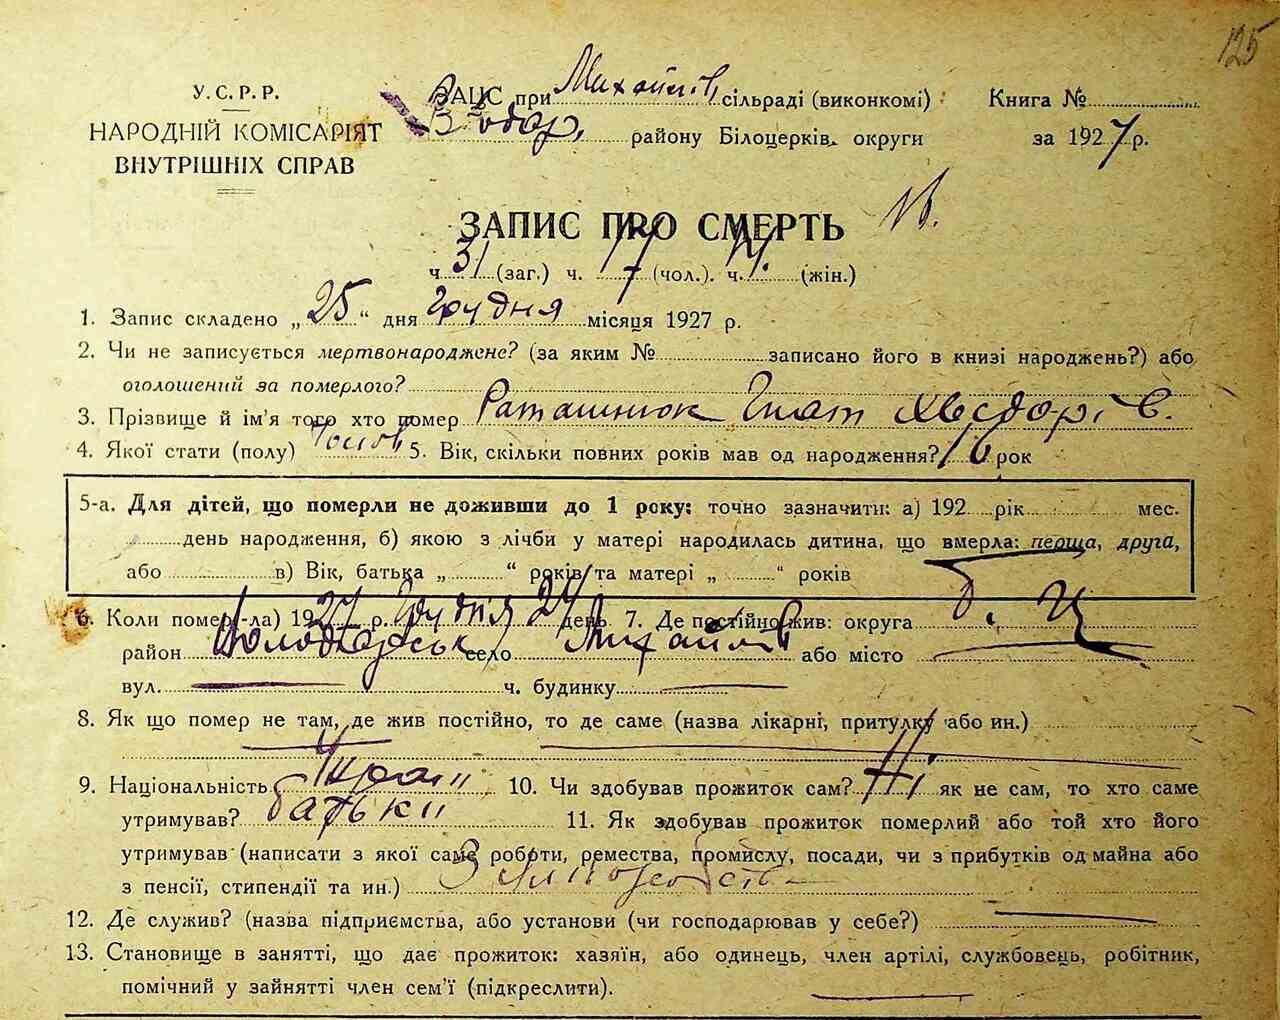 125
У.С.Р.Р.
НАРОДНІЙ КОМІСАРІЯТ
ВНУТРІШНІХ СПРАВ
ЗАЦС при Михайлів сільраді (виконкомі)
району Білоцерків. округи
Книга №
за 1927 р.
ЗАПИС ПРО СМЕРТЬ
ч. 31 (заг.) ч. 17 (чол.). ч. 14 (жін.)
1. Запис складено „25“ дня Грудня місяця 1927 р.
2. Чи не записується мертвонароджене? (за яким № записано його в книзі народжень?) або
оголошений за померлого?
3. Прізвище й ім'я того хто помер Раташнюк Гнат Хведорів.
4. Якої стати (полу) Чолов 5. Вік, скільки повних років мав од народження? рок
5-а. Для дітей, що померли не доживши до 1 року: точно зазначити: а) 192 рік мес.
день народження, б) якою з лічби у матері народилась дитина, що вмерла: перща, друга,
або в) Вік, батька „ “ років та матері „ “ років
6. Коли помер(-ла) 1927 р. Грудня 24 день 7. Де постійно жив: округа Б. Ц
район Володарськ село Михайлів або місто
вул. ч. будинку
8. Як що помер не там, де жив постійно, то де саме (назва лікарні, притулку або ин.)
9. Національність Украї 10. Чи здобував прожиток сам? Ні як не сам, то хто саме
утримував? батьки 11. Як здобував прожиток померлий або той хто його
утримував (написати з якої саме роботи, ремества, промислу, посади, чи з прибутків од майна або
з пенсії, стипендії та ин.) З
12. Де служив? (назва підприємства, або установи (чи господарював у себе?)
13. Становище в занятті, що дає прожиток: хазяїн, або одинець, член артілі, службовець, робітник,
помічний у зайнятті член сем'ї (підкреслити).